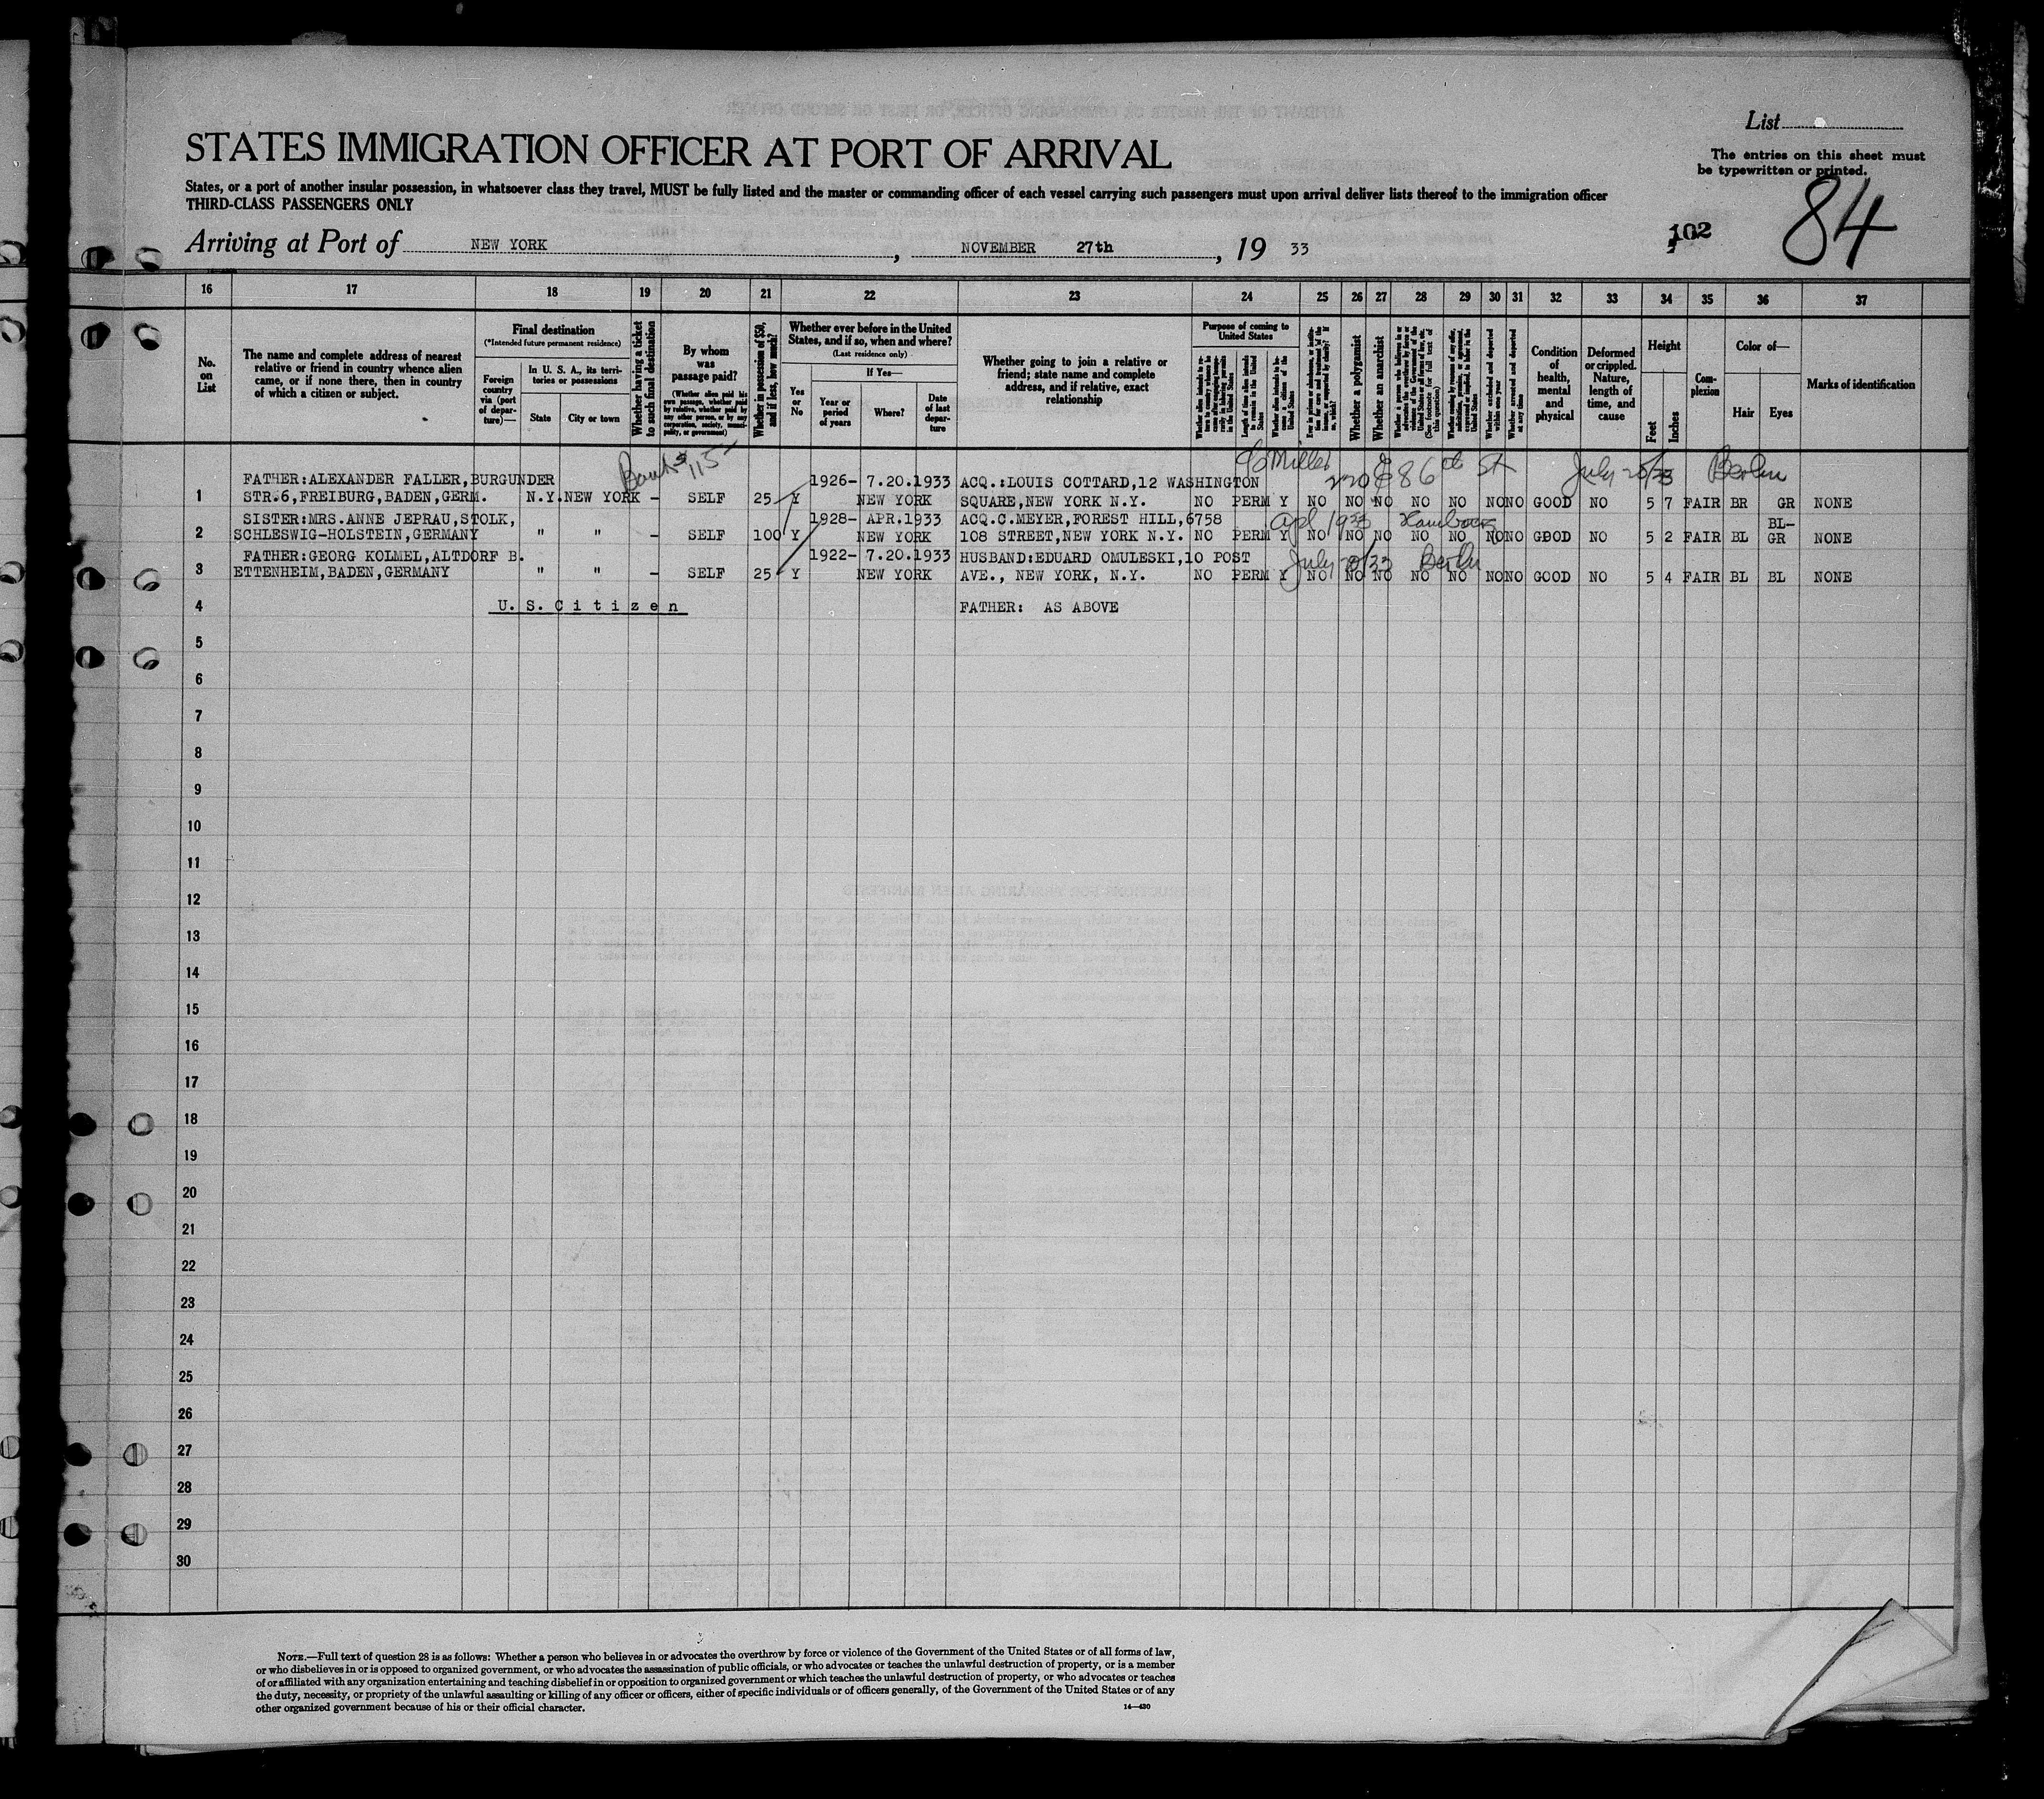 List
The entries on this sheet must
be typewritten or printed.
STATES IMMIGRATION OFFICER AT PORT OF ARRIVAL
States, or a port of another insular possession, in whatsoever class they travel, MUST be fully listed and the master or commanding officer of each vessel carrying such passengers must upon arrival deliver lists thereof to the immigration officer
THIRD-CLASS PASSENGERS ONLY
102
84
Arriving at Port of NEW YORK, NOVEMBER 27th, 19 33
16 17 18 19 20 21 22 23 24 25 26 27 28 29 30 31 32 33 34 35 36 37
No.
on
List
The name and complete address of nearest
relative or friend in country whence alien
came, or if none there, then in country
of which a citizen or subject.
Final destination
(*Intended future permanent residence)
Foreign
country
via (port
of depar-
ture)—
In U. S. A., its terri-
tories or possessions
State
City or town
Whether having a ticket
to such final destination
By whom
was
passage paid?
(Whether alien paid his
own passage, whether paid
by relative, whether paid by
any other person, or by any
corporation, society, munici-
pality, or government)
Whether in possession of $50,
and if less, how much?
Whether ever before in the United
States, and if so, when and where?
(Last residence only)
Yes
or
No
If Yes—
Year or
period
of years
Where?
Date
of last
depar-
ture
Whether going to join a relative or
friend; state name and complete
address, and if relative, exact
relationship
Purpose of coming to
United States
Whether a polygamist
Whether an anarchist
Whether excluded and deported
within one year
Whether arrested and deported
at any time
Condition
of
health,
mental
and
physical
Deformed
or crippled.
Nature,
length of
time, and
cause
Height
Feet
Inches
Com-
plexion
Color of—
Hair
Eyes
Marks of identification
c/o Miller
220 E 86th St
July 20/33 Berlin
115
FATHER:ALEXANDER FALLER,BURGUNDER 1926- 7.20.1933 ACQ.:LOUIS COTTARD,12 WASHINGTON
1 STR.6,FREIBURG,BADEN,GERM. N.Y. NEW YORK - SELF 25 Y NEW YORK SQUARE,NEW YORK N.Y. NO PERM Y NO NO NO NO NO NO NO GOOD NO 5 7 FAIR BR GR NONE
SISTER:MRS.ANNE JEPRAU,STOLK, 1928- APR.1933 ACQ.C.MEYER,FOREST HILL,6758 Apl 1933 Hamburg BL-
2 SCHLESWIG-HOLSTEIN,GERMANY " " - SELF 100 Y NEW YORK 108 STREET,NEW YORK N.Y. NO PERM Y NO NO NO NO NO NO NO GOOD NO 5 2 FAIR BL GR NONE
FATHER:GEORG KOLMEL,ALTDORF B. 1922- 7.20.1933 HUSBAND:EDUARD OMULESKI,10 POST July 20/33 Berlin
3 ETTENHEIM,BADEN,GERMANY " " - SELF 25 Y NEW YORK AVE., NEW YORK, N.Y. NO PERM Y NO NO NO NO NO NO NO GOOD NO 5 4 FAIR BL BL NONE
4 U. S. Citizen FATHER: AS ABOVE
5
6
7
8
9
10
11
12
13
14
15
16
17
18
19
20
21
22
23
24
25
26
27
28
29
30
NOTE.—Full text of question 28 is as follows: Whether a person who believes in or advocates the overthrow by force or violence of the Government of the United States or of all forms of law,
or who disbelieves in or is opposed to organized government, or who advocates the assassination of public officials, or who advocates or teaches the unlawful destruction of property, or is a member
of or affiliated with any organization entertaining and teaching disbelief in or opposition to organized government or which teaches the unlawful destruction of property, or who advocates or teaches
the duty, necessity, or propriety of the unlawful assaulting or killing of any officer or officers, either of specific individuals or of officers generally, of the Government of the United States or of any
other organized government because of his or their official character.
14—430